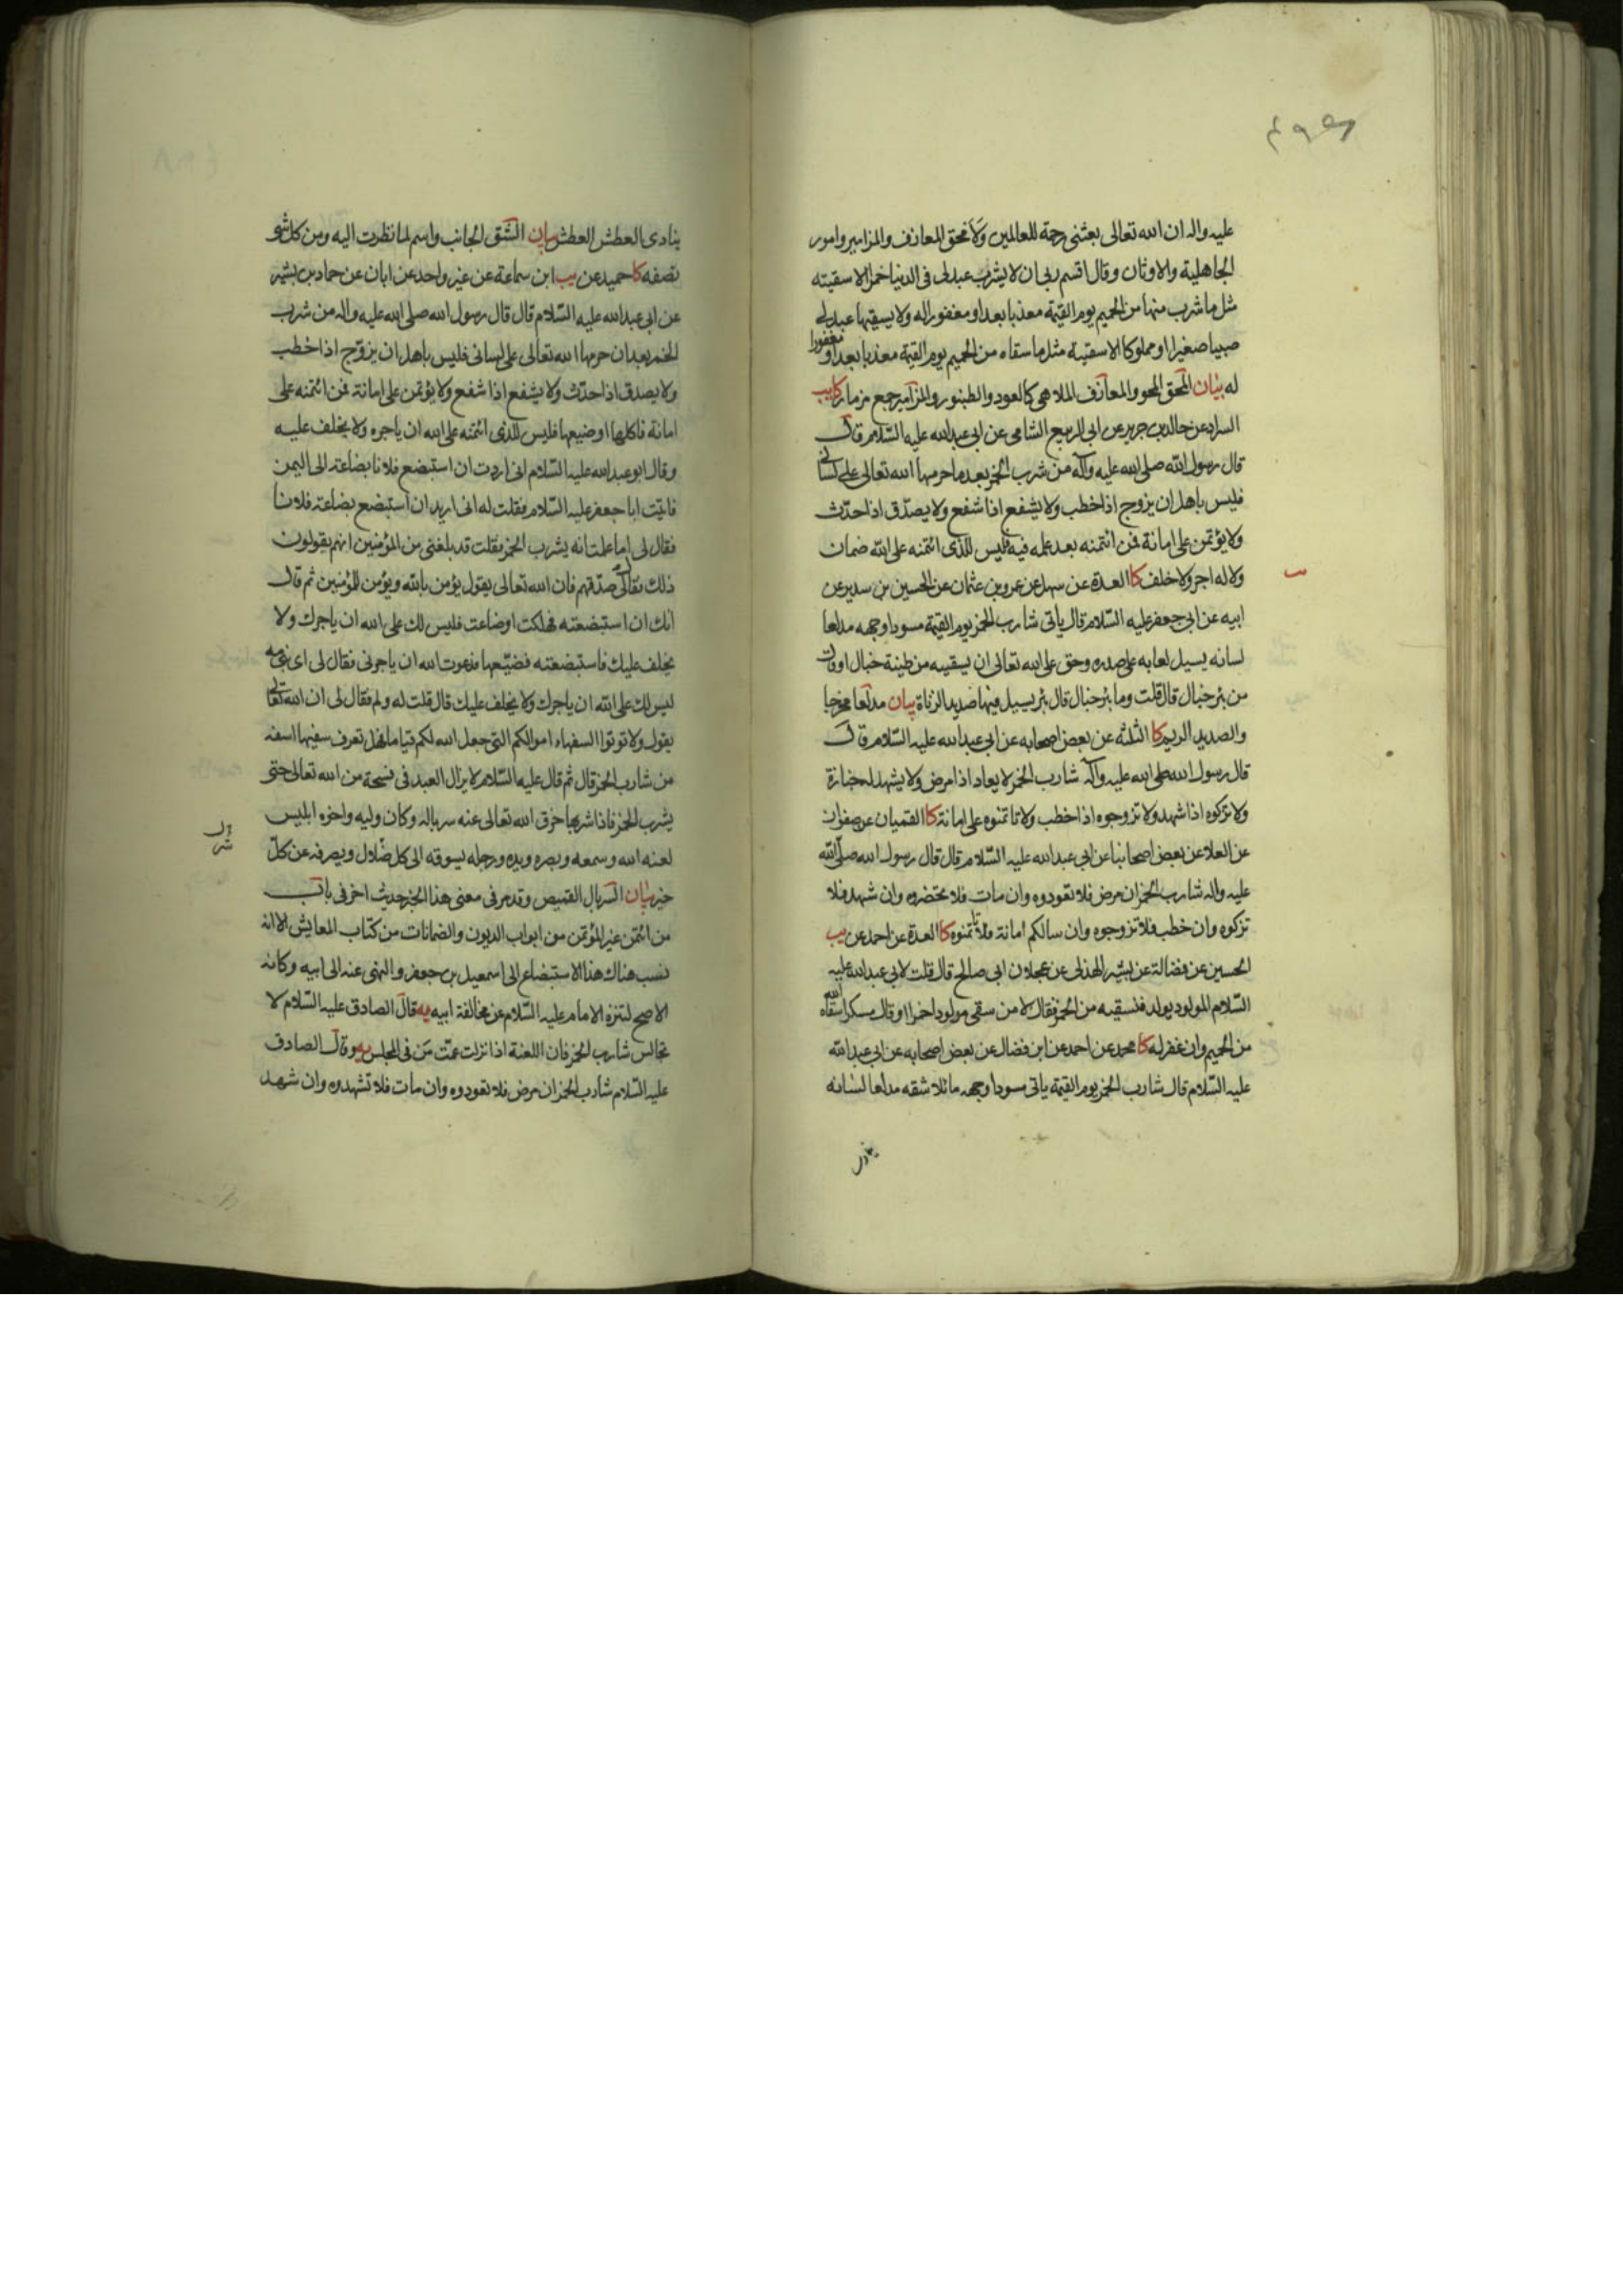 عليه واله ان الله تعالى بعثنى رحمة للعالمين ولأمحق المعازف والمزامير وامور
الجاهلية والاوثان وقال اقسم ربى ان لا يشرب عبد لى فى الدنيا خمرا الا سقيته
مثل ما شرب منها من الحميم يوم القيمة معذبا بعد او مغفورا له ولا يسقيها عبد لى
صبيا صغيرا او مملوكا الا سقيته مثل ما سقاه من الحميم يوم القيمة معذبا بعد او مغفورا
له بيان المحق المحو والمعازف الملاهى كالعود والطنبور والمزامير جمع مزمار كا يب
السراد عن خالد بن جرير عن ابى الربيع الشامى عن ابى عبد الله عليه السلام قال
قال رسول الله صلى الله عليه وآله من شرب الخمر بعد ما حرمها الله تعالى على لسانى
فليس باهل ان يزوج اذا خطب ولا يشفع اذا شفع ولا يصدّق اذا حدّث
ولا يؤتمن على امانة فمن ائتمنه بعد علمه فيه فليس للذى ائتمنه على الله ضمان
ولا له اجر ولا خلف كا العدة عن سهل عن عمرو بن عثمان عن الحسين بن سدير عن
ابيه عن ابى جعفر عليه السلام قال ياتى شارب الخمر يوم القيمة مسودا وجهه مدلعا
لسانه يسيل لعابه على صدره وحق على الله تعالى ان يسقيه من طينة خبال او قال
من بئر خبال قال قلت وما بئر خبال قال بئر يسيل فيها صديد الزناة بيان مدلعا مخرجا
والصديد الريم كا الثلثة عن بعض اصحابه عن ابى عبد الله عليه السلام قال
قال رسول الله صلى الله عليه وآله شارب الخمر لا يعاد اذا مرض ولا يشهد له جنازة
ولا تزكوه اذا شهد ولا تزوجوه اذا خطب ولا تاتمنوه على امانة كا القميان عن صفوان
عن العلا عن بعض اصحابنا عن ابى عبد الله عليه السلام قال قال رسول الله صلى الله
عليه واله شارب الخمر ان مرض فلا تعودوه وان مات فلا تحضروه وان شهد فلا
تزكوه وان خطب فلا تزوجوه وان سالكم امانة فلا تاتمنوه كا العدة عن احمد عن يب
الحسين عن فضالة عن بشير الهذلى عن عجلان ابى صالح قال قلت لابى عبد الله عليه
السلام المولود يولد فنسقيه من الخمر فقال لا من سقى مولودا خمرا او قال مسكرا سقاه الله
من الحميم وان غفر له كا محمد عن احمد عن ابن فضال عن بعض اصحابه عن ابى عبد الله
عليه السلام قال شارب الخمر يوم القيمة ياتى مسودا وجهه مائلا شقه مدلعا لسانه
ينادى
ينادى العطش العطش بيان الشق الجانب واسم لما نظرت اليه ومن كل شىء
نصفه كا حميد عن يب ابن سماعة عن غير واحد عن ابان عن حماد بن بشير
عن ابى عبد الله عليه السلام قال قال رسول الله صلى الله عليه واله من شرب
الخمر بعد ان حرمها الله تعالى على لسانى فليس باهل ان يزوّج اذا خطب
ولا يصدق اذا حدّث ولا يشفع اذا شفع ولا يؤتمن على امانة فمن ائتمنه على
امانة فاكلها او ضيعها فليس للذى ائتمنه على الله ان ياجره ولا يخلف عليه
وقال ابو عبد الله عليه السلام انى اردت ان استبضع فلانا بضاعة الى اليمن
فاتيت ابا جعفر عليه السلام فقلت له انى اريد ان استبضع بضاعة فلانا
فقال لى اما علمت انه يشرب الخمر فقلت قد بلغنى من المؤمنين انهم يقولون
ذلك فقال لى صدّقهم فان الله تعالى يقول يؤمن بالله ويؤمن للمؤمنين ثم قال
انك ان استبضعته فهلكت او ضاعت فليس لك على الله ان ياجرك ولا
يخلف عليك فاستبضعته فضيّعها فدعوت الله ان ياجرنى فقال لى اى بنى مه
ليس لك على الله ان ياجرك ولا يخلف عليك قال قلت له ولم فقال لى ان الله تعالى
يقول ولا تؤتوا السفهاء اموالكم التى جعل الله لكم قياما فهل تعرف سفيها اسفه
من شارب الخمر قال ثم قال عليه السلام لا يزال العبد فى فسحة من الله تعالى حتى
يشرب الخمر فاذا شربها خرق الله تعالى عنه سرباله وكان وليه واخوه ابليس
لعنه الله وسمعه وبصره ويده ورجله يسوقه الى كل ضلال ويصرفه عن كلّ
خير بيان السربال القميص وقد مر فى معنى هذا الخبر حديث اخر فى باب
من ائتمن غير المؤتمن من ابواب الديون والضمانات من كتاب المعايش الا انه
نسب هناك هذا الاستبضاع الى اسمعيل بن جعفر والنهى عنه الى ابيه وكانه
الاصح لتنزه الامام عليه السلام عن مخالفة ابيه يه قال الصادق عليه السلام لا
تجالس شارب الخمر فان اللعنة اذا نزلت عمّت من فى المجلس يه وقال الصادق
عليه السلام شارب الخمر ان مرض فلا تعودوه وان مات فلا تشهدوه وان شهد